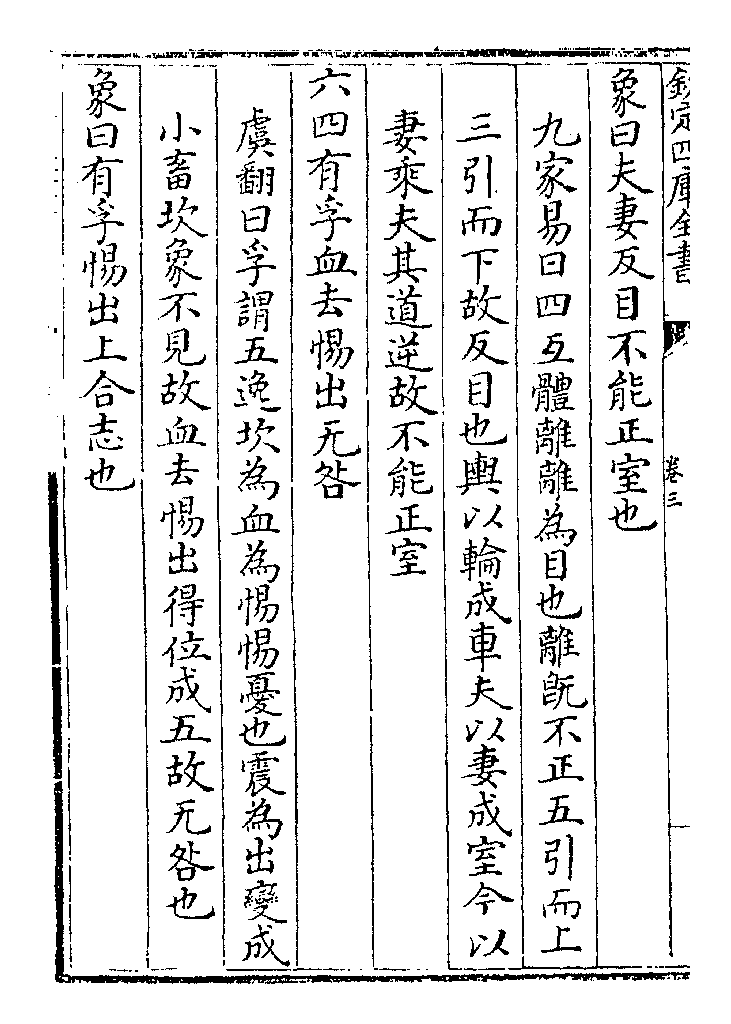 欽定四庫全書
卷三
象曰夫妻反目不能正室也
九家易曰四互體離離為目也離既不正五引而上
三引而下故反目也輿以輪成車夫以妻成室今以
妻乘夫其道逆故不能正室
六四有孚血去惕出无咎
虞翻曰孚謂五逸坎為血為惕惕憂也震為出變成
小畜坎象不見故血去惕出得位成五故无咎也
象曰有孚惕出上合志也